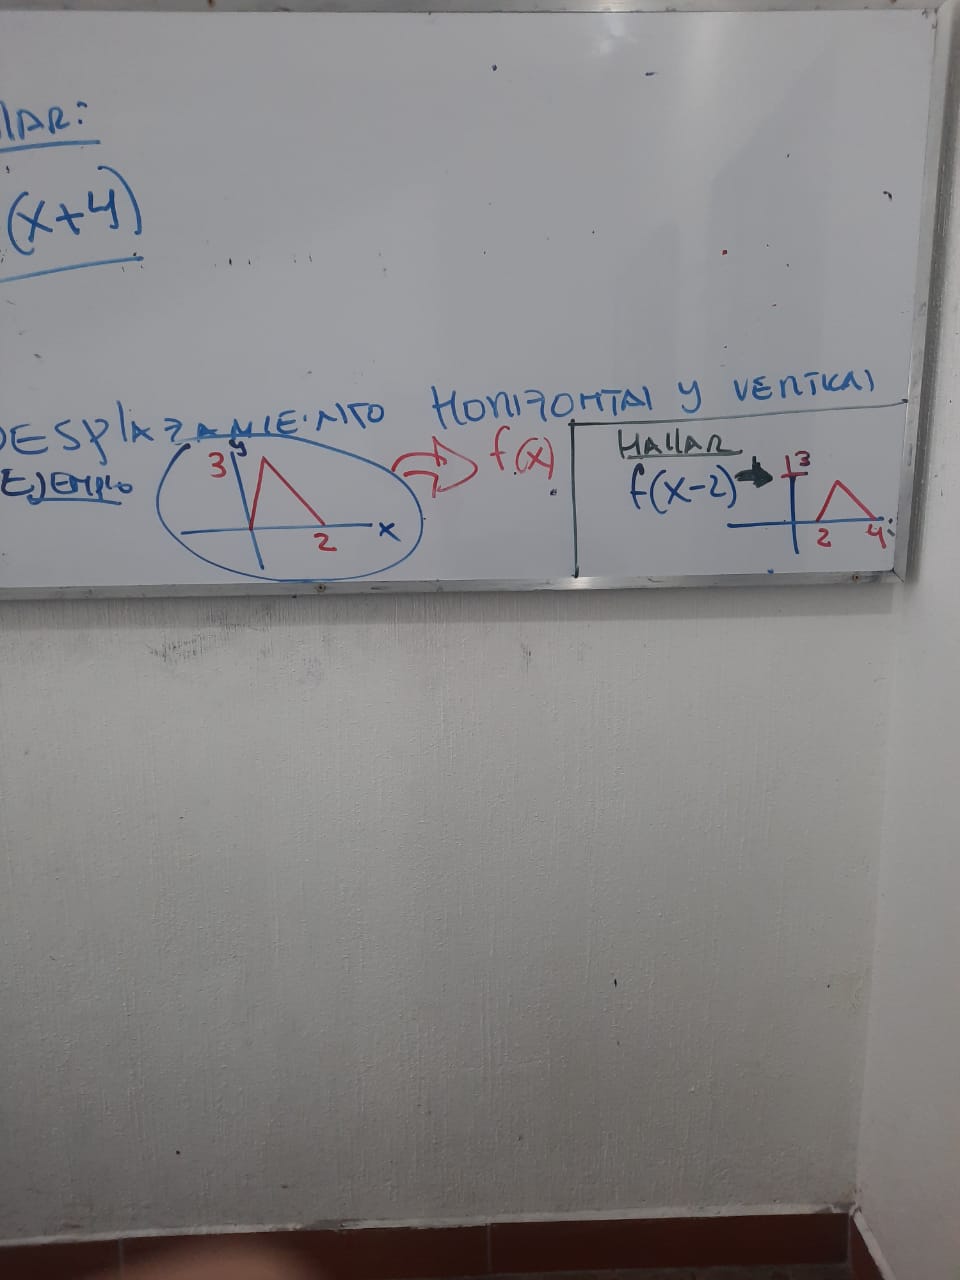 (x+4)
DESPLAZAMIENTO HORIZONTAL Y VERTICAL
EJEMPLO
y
3
2
x
f(x)
HALLAR
f(x-2)
3
2
4